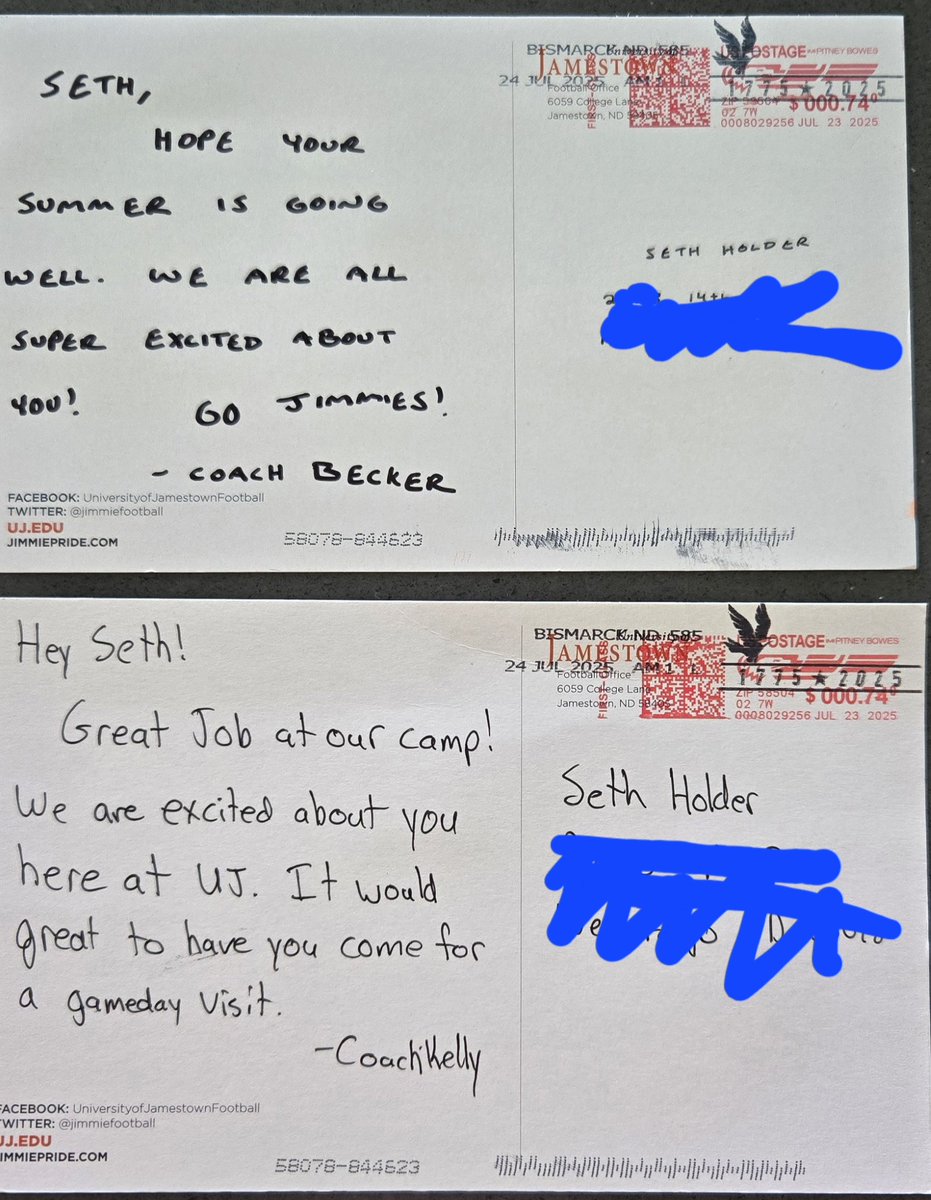 SETH,
HOPE YOUR
SUMMER IS GOING
WELL. WE ARE ALL
SUPER EXCITED ABOUT
YOU! GO JIMMIES!
- COACH BECKER
FACEBOOK: UniversityofJamestownFootball
TWITTER: @jimmiefootball
UJ.EDU
JIMMIEPRIDE.COM
58078-844623
BISMARCK ND 585
University of
JAMESTOWN
24 JUL 2025 AM 1
Football Office
6059 College Lane
Jamestown, ND
FIRST-CLASS
US POSTAGE IMI PITNEY BOWES
1775 ★ 2025
ZIP 58504 $ 000.74⁰
02 7W
0008029256 JUL 23 2025
SETH HOLDER
14th
Hey Seth!
Great Job at our camp!
We are excited about you
here at UJ. It would
great to have you come for
a gameday visit.
-Coach Kelly
FACEBOOK: UniversityofJamestownFootball
TWITTER: @jimmiefootball
UJ.EDU
JIMMIEPRIDE.COM
58078-844623
BISMARCK ND 585
University of
JAMESTOWN
24 JUL 2025 AM 1
Football Office
6059 College Lane
Jamestown, ND
FIRST-CLASS
US POSTAGE IMI PITNEY BOWES
1775 ★ 2025
ZIP 58504 $ 000.74⁰
02 7W
0008029256 JUL 23 2025
Seth Holder